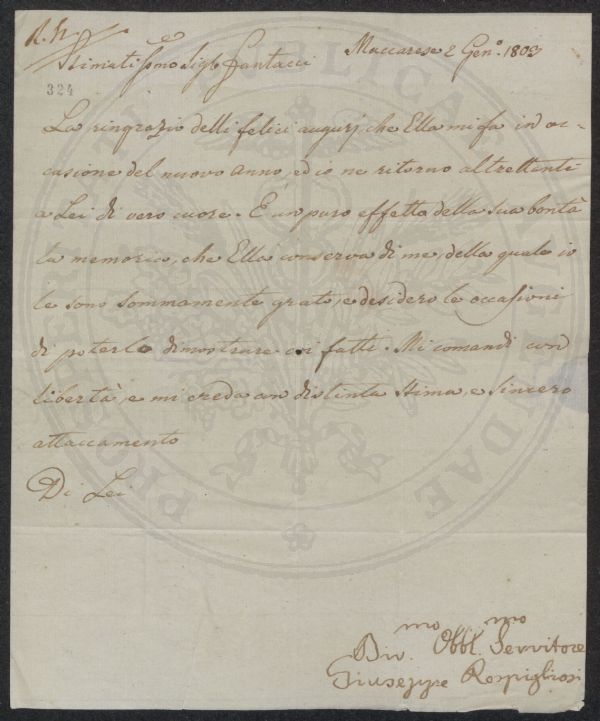 Maccarese 2 Gen.o 1803
Stimatissmo Sigre Fantacci
324
La ringrazio delli felici augurj che Ella mi fa in oc-
casione del nuovo anno, ed io ne ritorno altrettanti
a Lei di vero cuore. È un puro effetto della sua bontà
la memoria, che Ella conserva di me, della quale io
le sono sommamente grato, e desidero le occasioni
di poterlo dimostrare coi fatti. Mi comandi con
libertà, e mi creda con distinta stima, e sincero
attaccamento
Di Lei
Div.mo Obbl.mo Servitore
Giuseppe Rospigliosi